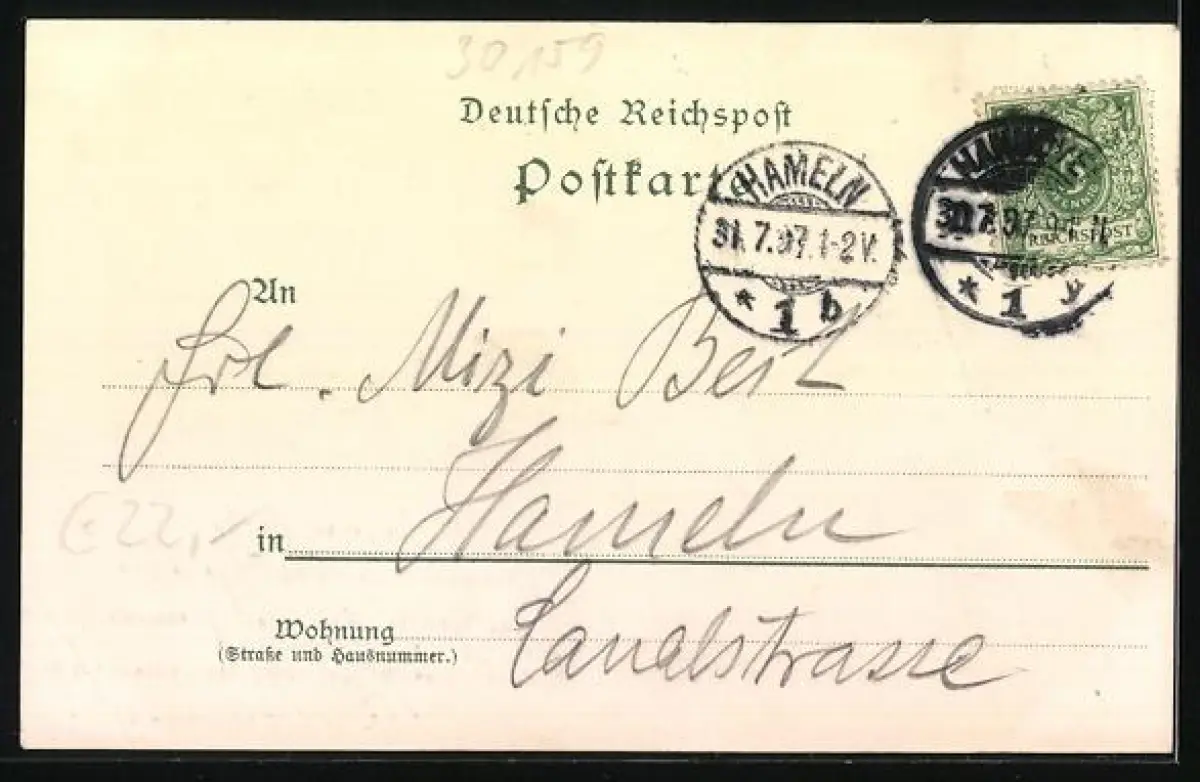 30,159
Deutsche Reichspost
Postkarte
HAMELN
31.7.97.1-2V.
* 1 b
HANNOVER
30.7.97.
* 1 y
REICHSPOST
An
Frl. Mizi Best
in Hameln
Wohnung
(Straße und Hausnummer.)
Canalstrasse
€ 22,-